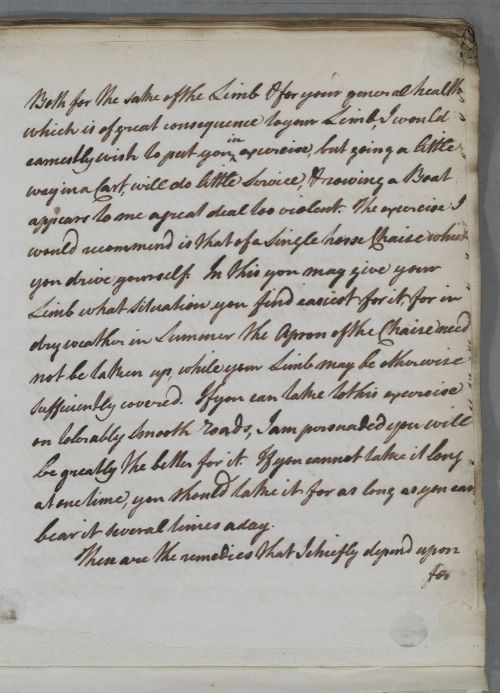 Both for the sake of the Limb & for your general health
which is of great consequence to your Limb, I would
earnestly wish to put you in exercise, but going a little
way in a Cart, will do little Service, & rowing a Boat
appears to me a great deal too violent. The exercise I
would recommend is that of a Single horse Chaise which
you drive yourself. In this you may give your
Limb what situation you find easiest for it, for in
dry weather in Summer the Apron of the Chaise need
not be taken up, while your Limb may be otherwise
sufficiently covered. If you can take to this exercise
on tolerably smooth roads, I am persuaded you will
be greatly the better for it. If you cannot take it long
at one time, you should take it for as long as you can
bear it several times a day.
These are the remedies that I chiefly depend upon
for